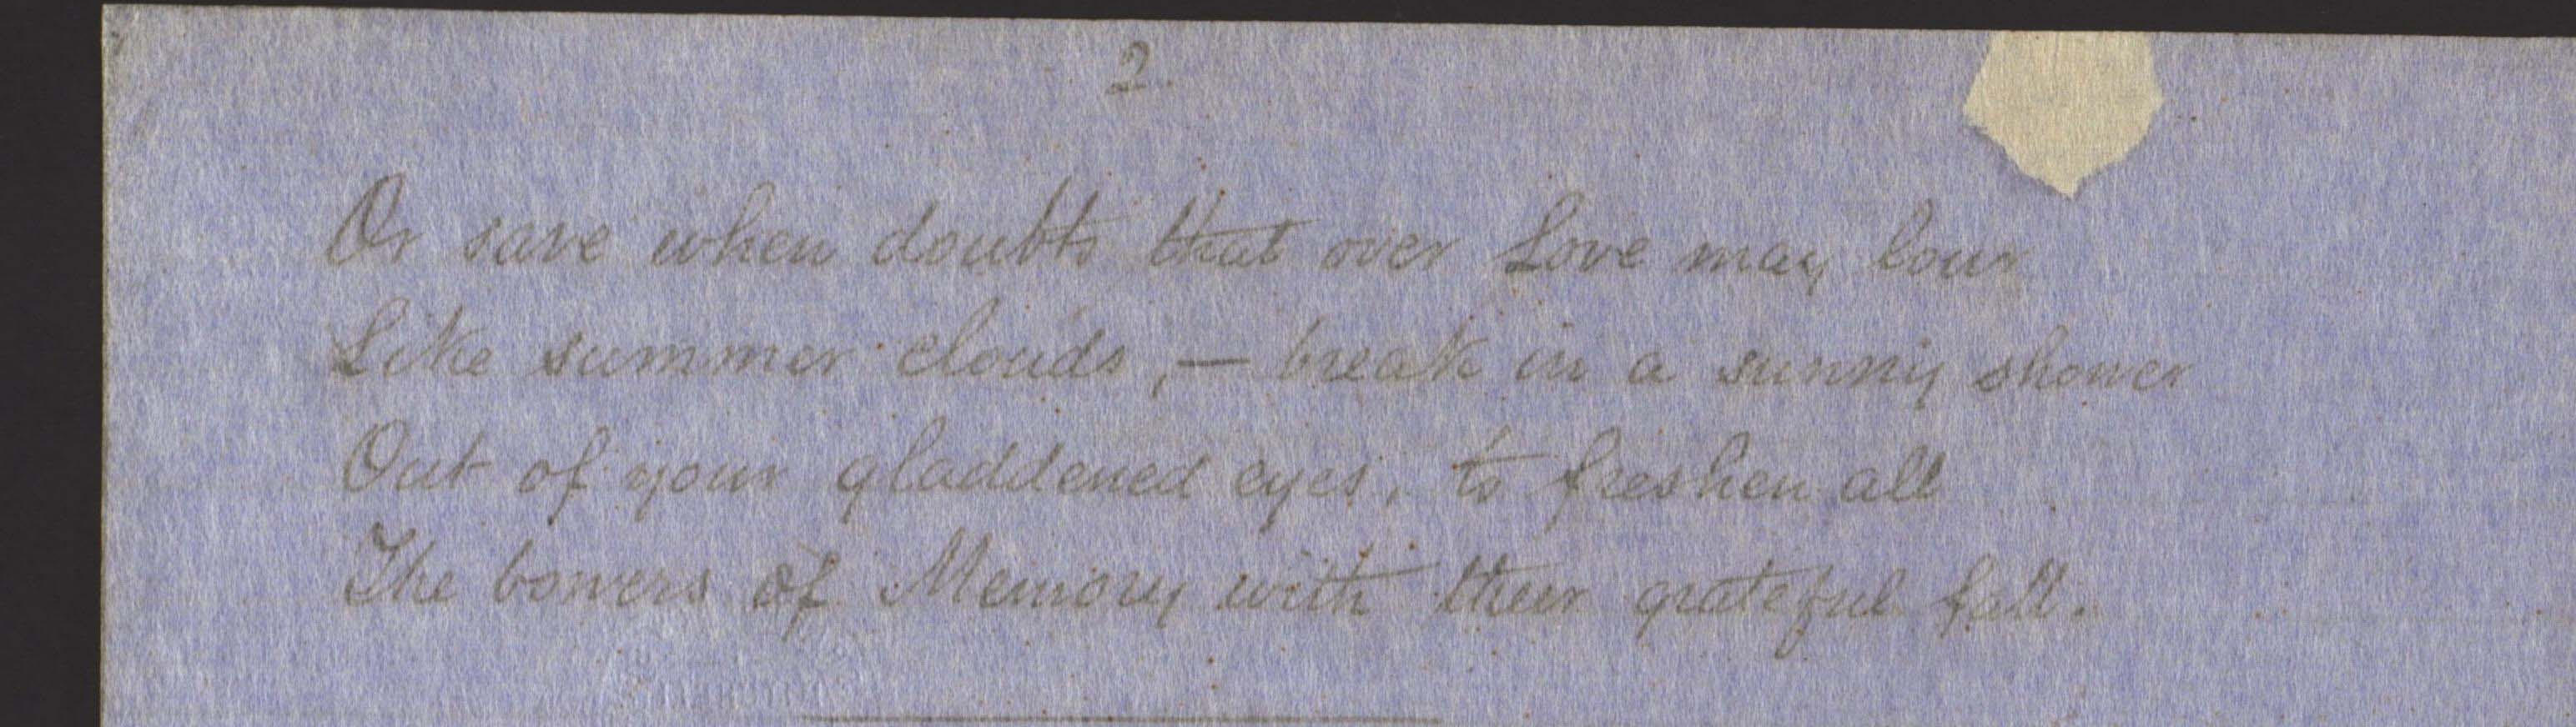 2.
Or save when doubts that over Love may lour
Like summer clouds, — break in a sunny shower
Out of your gladdened eyes, to freshen all
The bowers of Memory with their grateful fall.